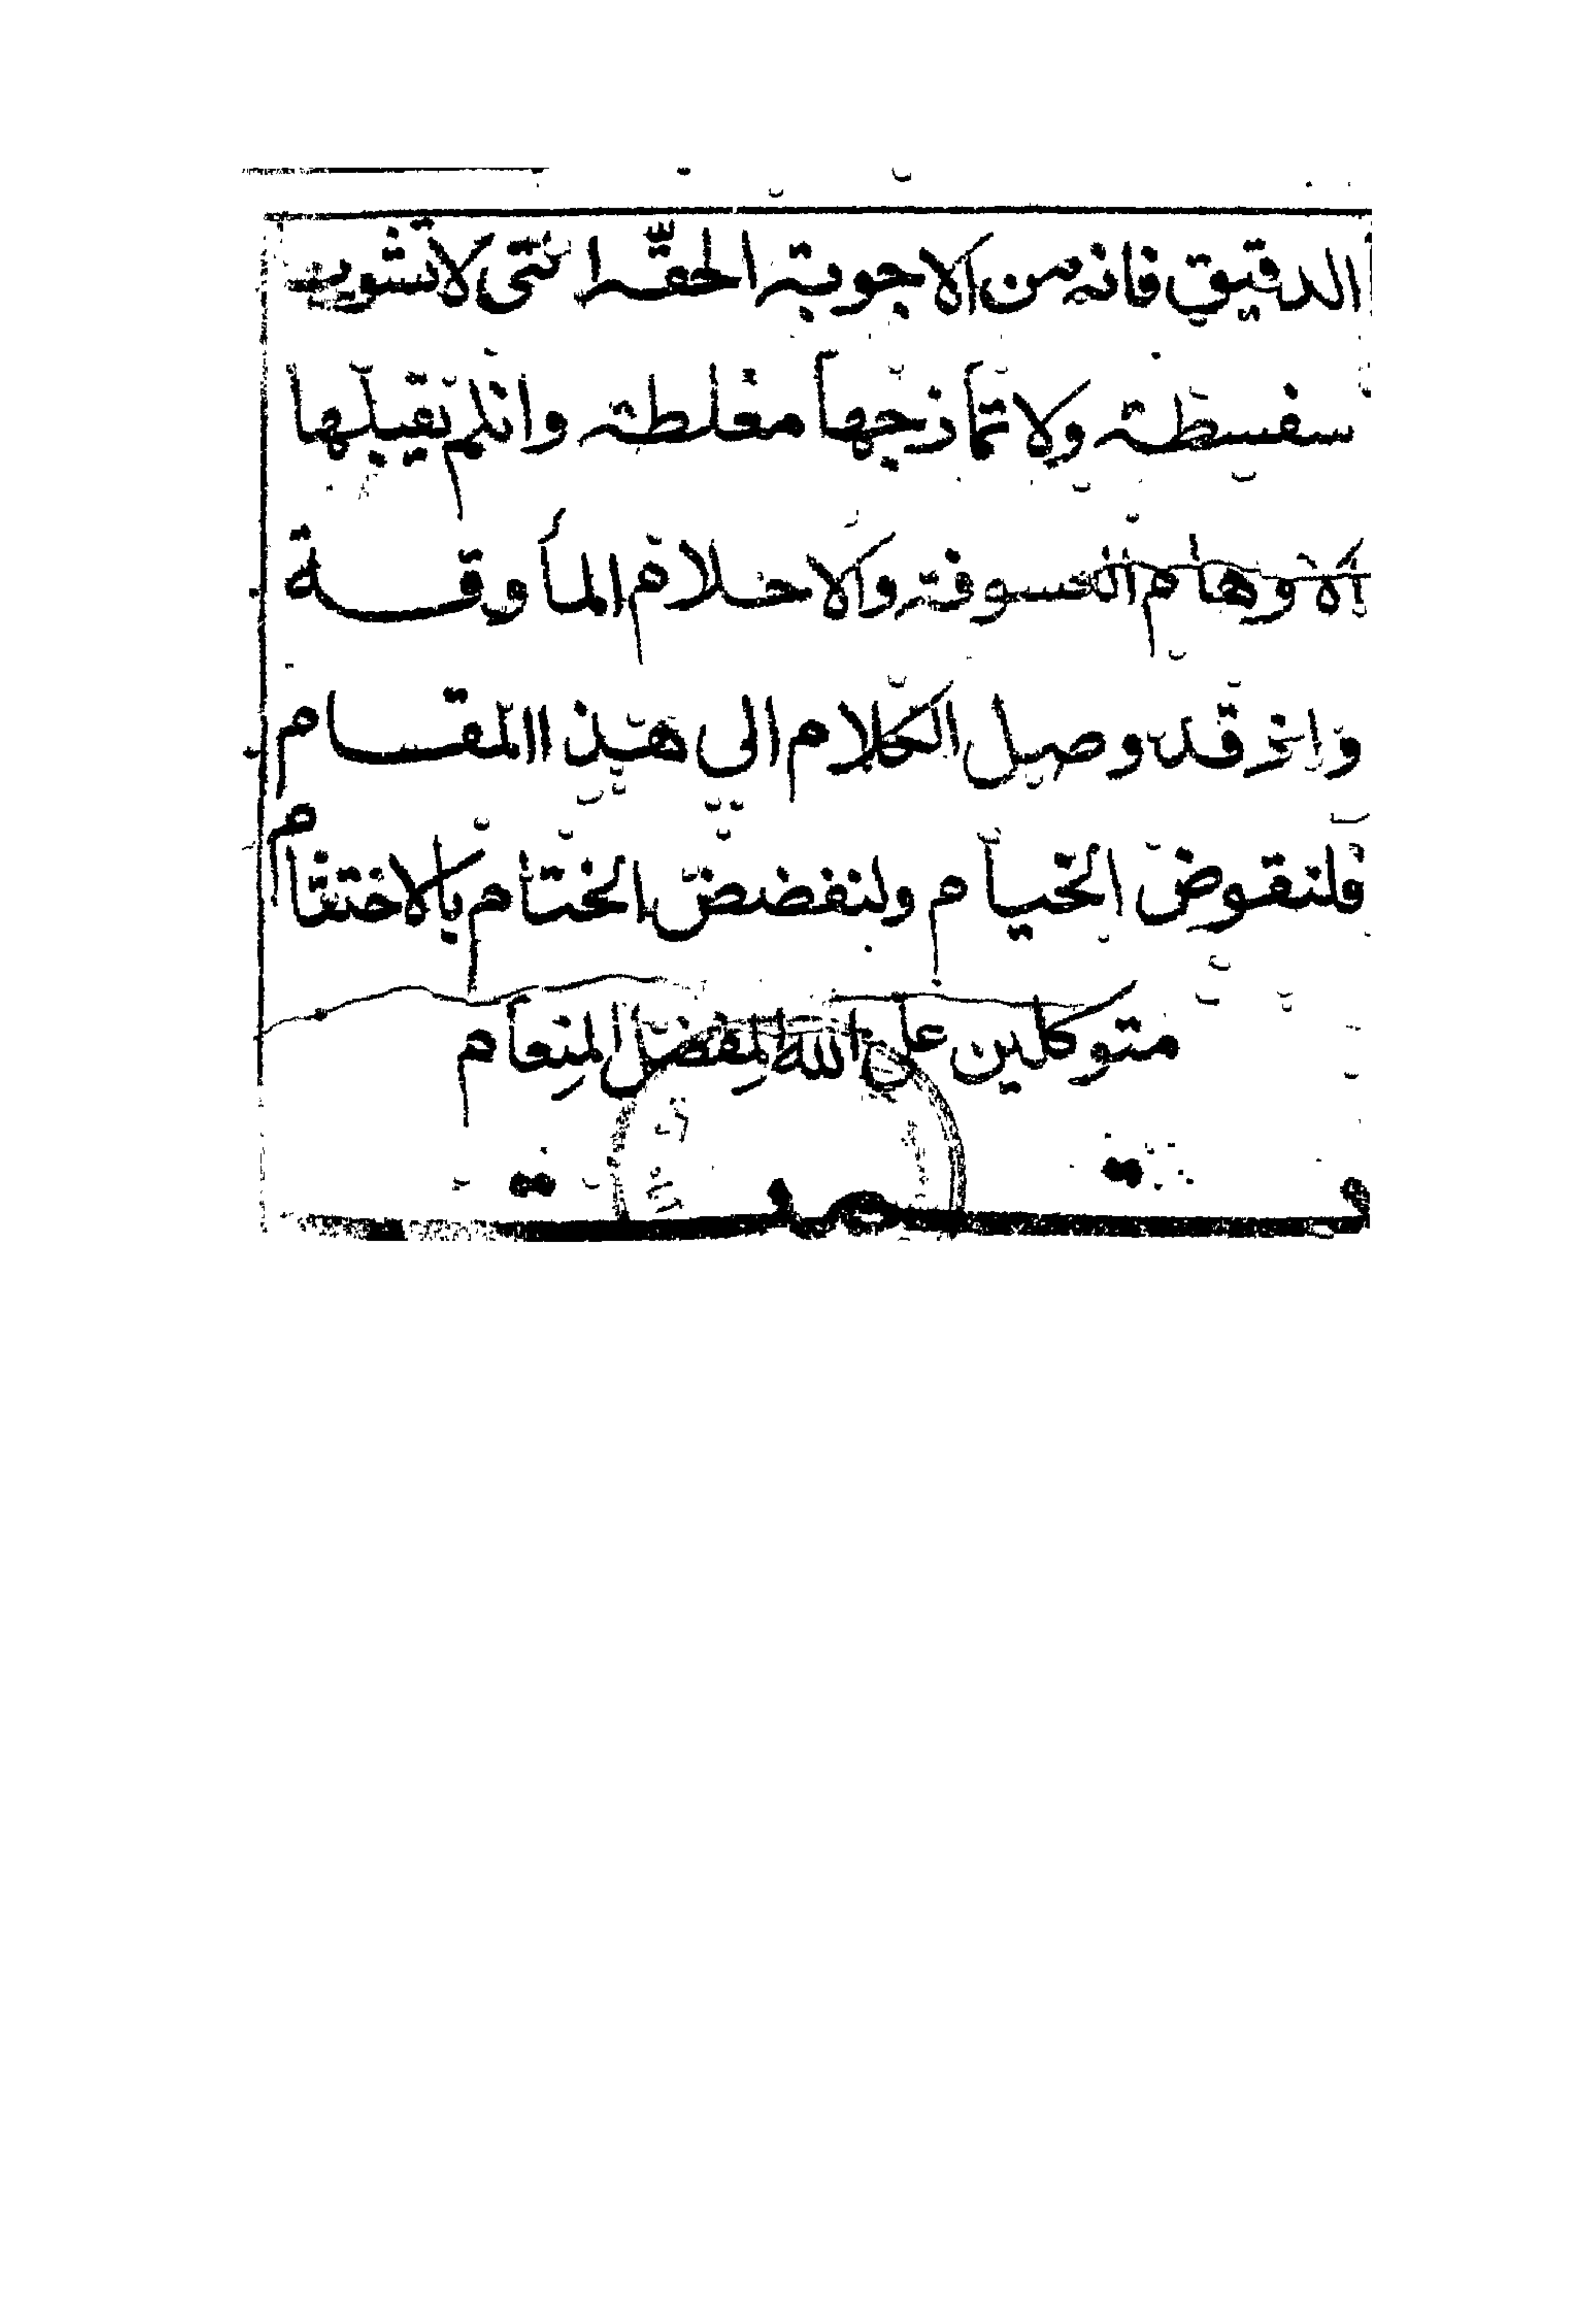 الدقيق فانه من الاجوبة الحقة التى لا تشوبها
سفسطة ولا تمازجها مغلطة وان لم تقبلها
الاوهام المسوفة والاحلام المأوقة
واذ قد وصل الكلام الى هذا المقام
فلنقوض الخيام ولنفضض الختام بالاختتام
متوكلين على الله المفضل المنعام